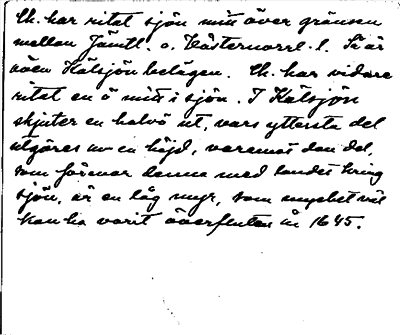 Ch. har ritat sjön mitt över gränsen
mellan Jämtl. o. Västernorrl. l. Så är
även Kälsjön belägen. Ch. har vidare
ritat en ö mitt i sjön. I Kälsjön
skjuter en halvö ut, vars yttersta del
utgöres av en höjd, varemot den del,
som förenar denna med landet kring
sjön, är en låg myr, som mycket väl
kan ha varit översfluten år 1645.